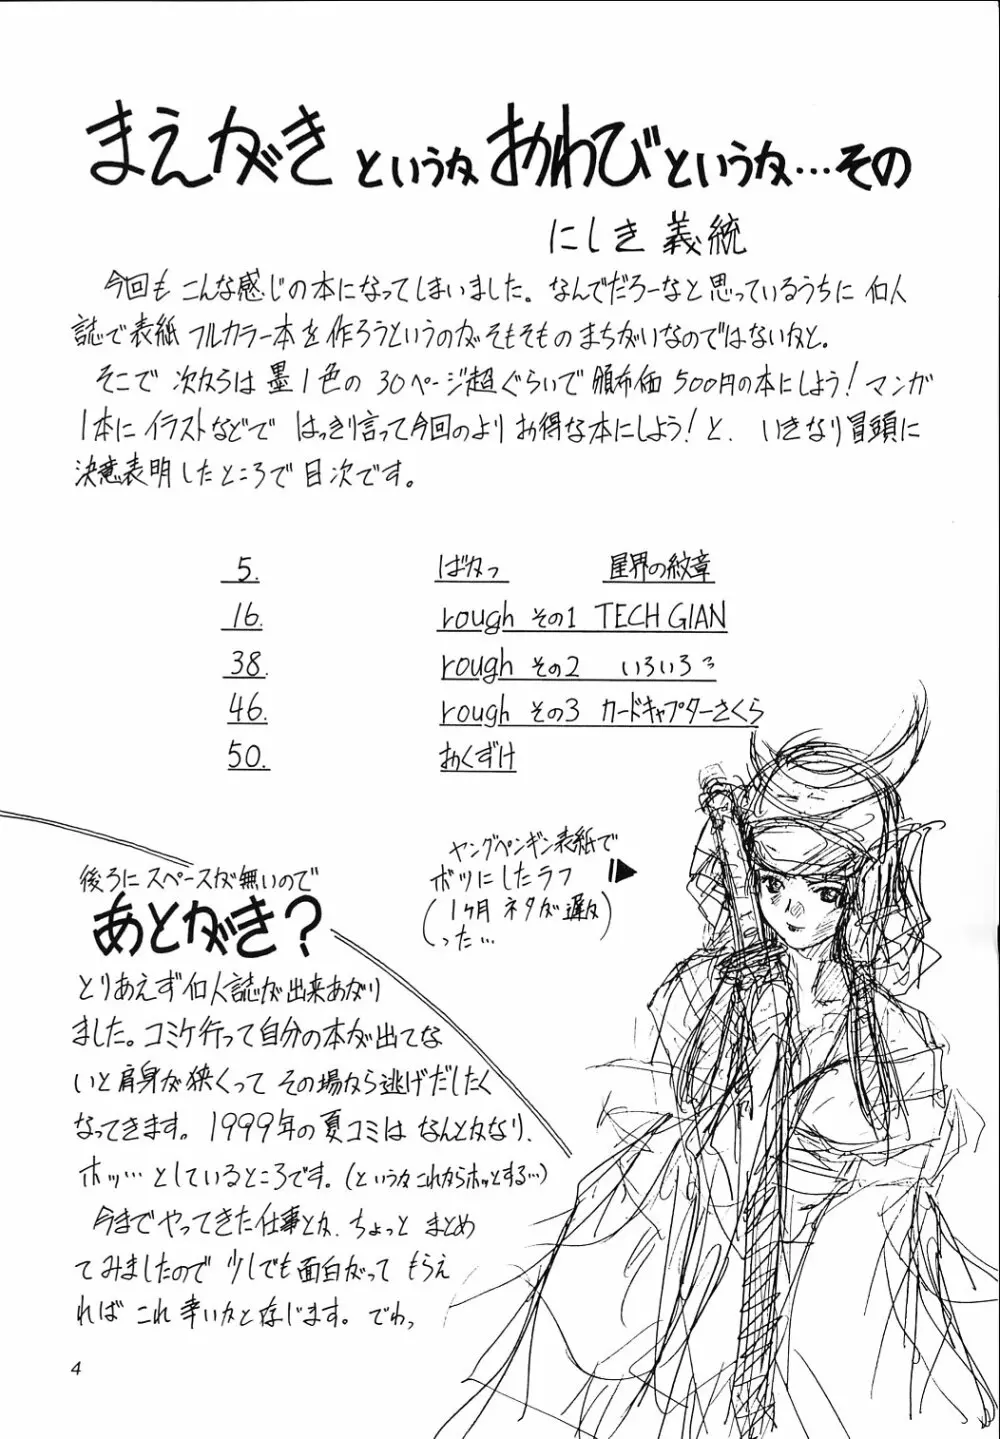 まえがきというかおわびというか…その
にしき義統
今回も こんな感じの本になってしまいました。なんでだろーなと思っているうちに 同人
誌で表紙 フルカラー本を作ろうというのがそもそものまちがいなのではないかと。
そこで 次からは 墨1色の 30ページ超ぐらいで 頒布価 500円の本にしよう!マンガ
1本に イラストなどで はっきり言って今回のより お得な本にしよう!と、いきなり冒頭に
決意表明したところで目次です。
5. ばかっ 星界の紋章
16. rough その1 TECH GIAN
38. rough その2 いろいろ
46. rough その3 カードキャプターさくら
50. おくずけ
ヤングペンギン表紙で
ボツにしたラフ
(1ヶ月 ネタが遅か
った…)
後ろに スペースが無いので
あとがき?
とりあえず同人誌が出来あがり
ました。コミケ行って自分の本が出てな
いと肩身が狭くって その場から逃げだしたく
なってきます。1999年の夏コミは なんとかなり、
ホッ…としているところです。(というかこれからホッとする…)
今までやってきた仕事とか、ちょっと まとめ
てみましたので 少しでも面白がって もらえ
れば これ幸いかと存じます。でわっ
4